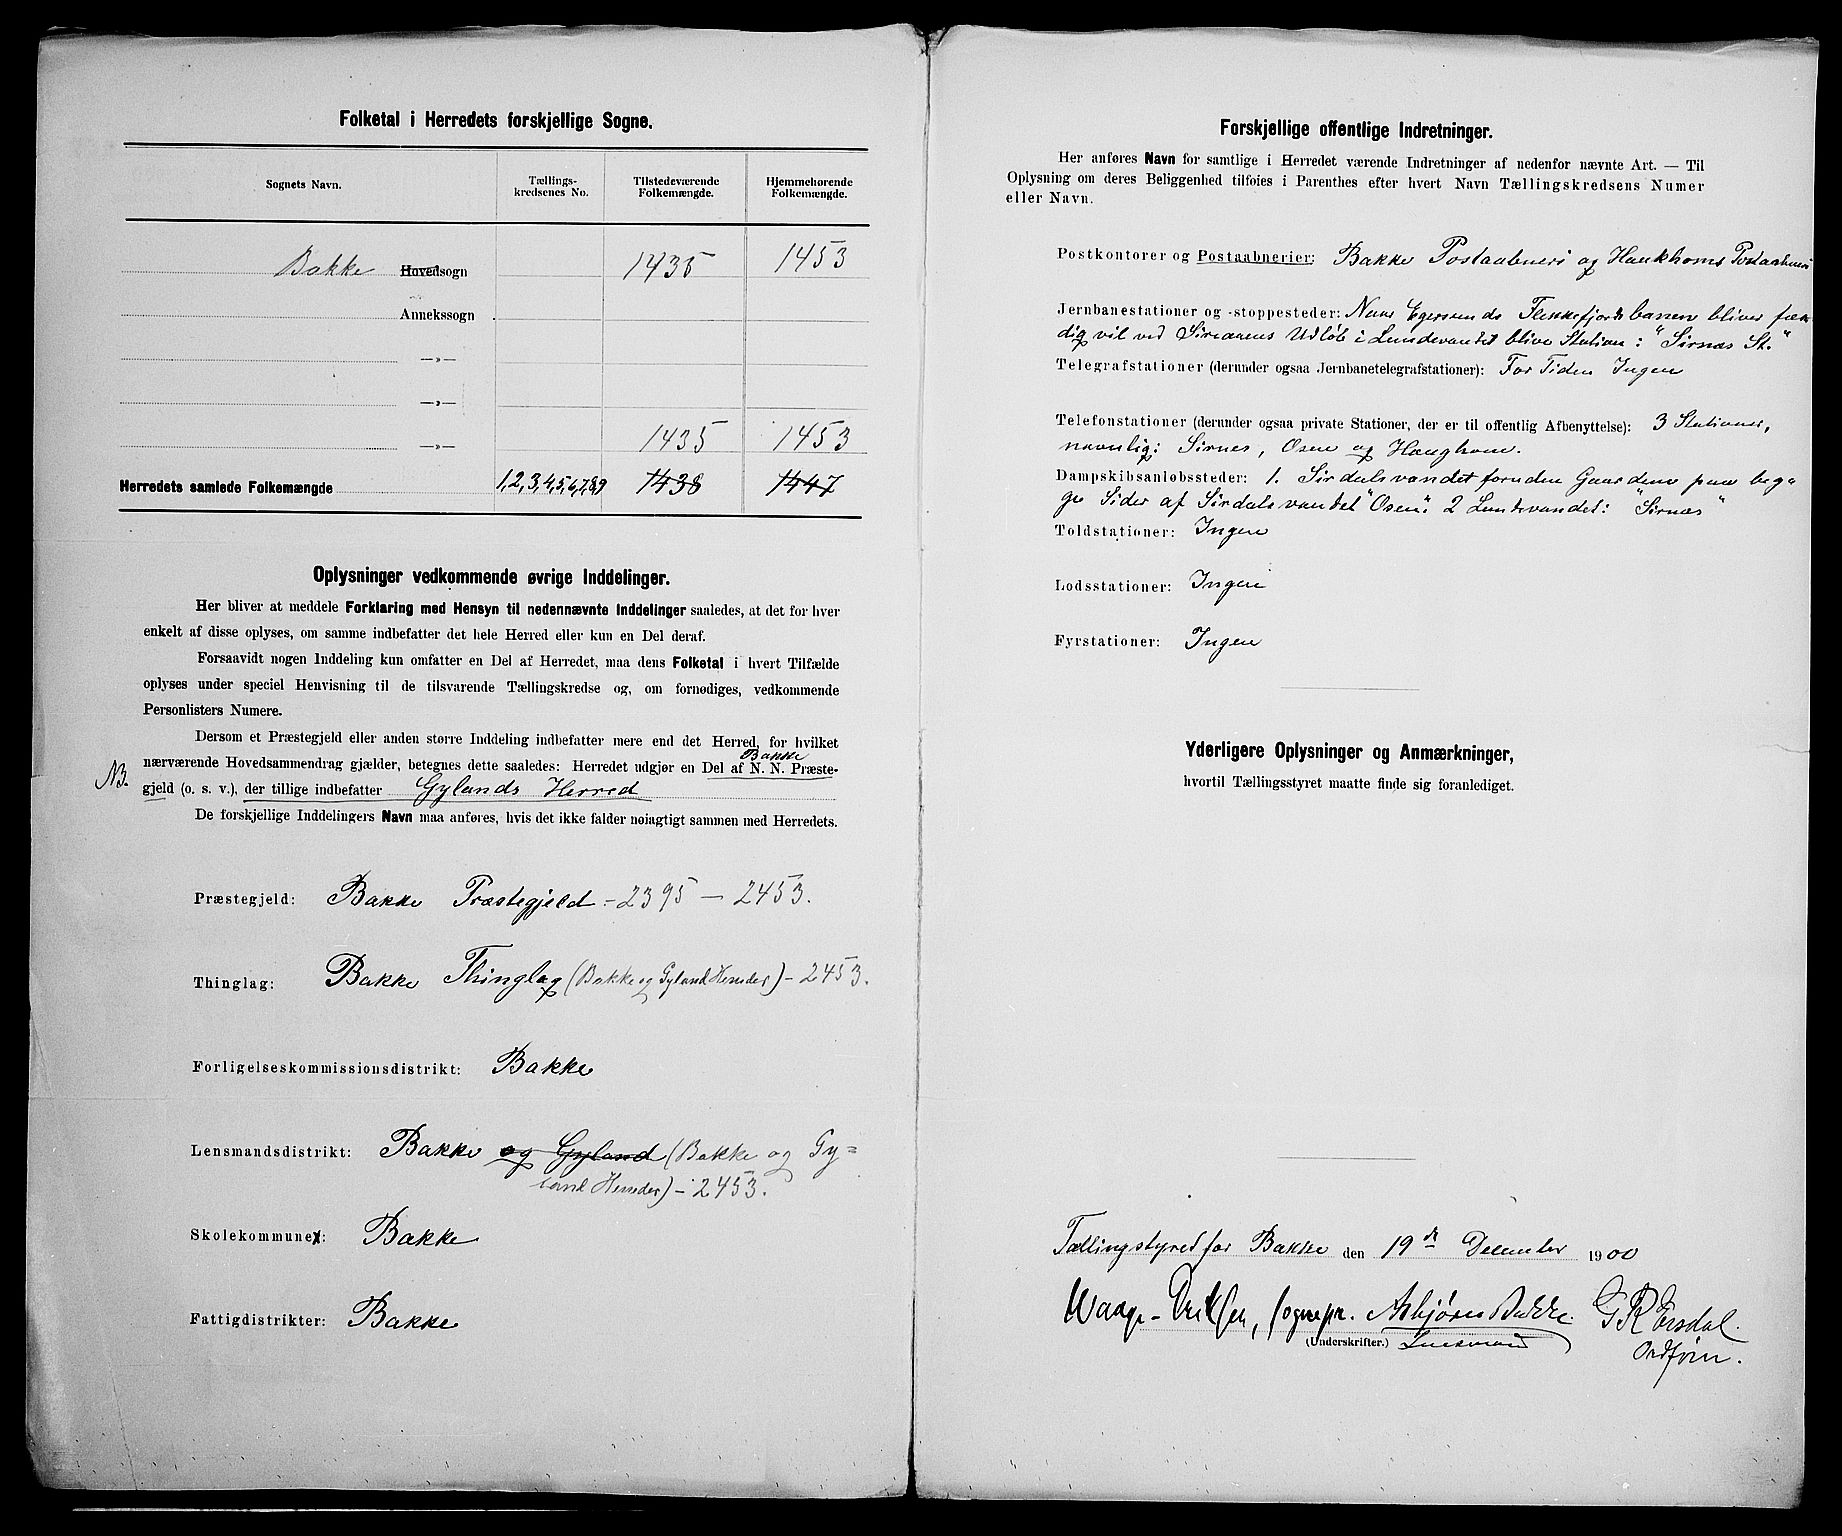 Folketal i Herredets forskjellige Sogne.
Sognets Navn.
Tællings-
kredsenes No.
Tilstedeværende
Folkemængde.
Hjemmehørende
Folkemængde.
Bakke Hovedsogn 1435 1453
Annekssogn
—»—
—»—
—»— 1435 1453
Herredets samlede Folkemængde 1,2,3,4,5,6,7,8,9 1438 1447
Oplysninger vedkommende øvrige Inddelinger.
Her bliver at meddele Forklaring med Hensyn til nedennævnte Inddelinger saaledes, at det for hver
enkelt af disse oplyses, om samme indbefatter det hele Herred eller kun en Del deraf.
Forsaavidt nogen Inddeling kun omfatter en Del af Herredet, maa dens Folketal i hvert Tilfælde
oplyses under speciel Henvisning til de tilsvarende Tællingskredse og, om fornødiges, vedkommende
Personlisters Numere.
Dersom et Præstegjeld eller anden større Inddeling indbefatter mere end det Herred, for hvilket
Bakke
nærværende Hovedsammendrag gjælder, betegnes dette saaledes: Herredet udgjør en Del af N. N. Præste-
NB. gjeld (o. s. v.), der tillige indbefatter Gylands Herred
De forskjellige Inddelingers Navn maa anføres, hvis det ikke falder nøiagtigt sammen med Herredets.
Præstegjeld: Bakke Præstegjeld - 2395 — 2453.
Thinglag: Bakke Thinglag (Bakke og Gyland Herreder) - 2453.
Forligelseskommissionsdistrikt: Bakke
Lensmandsdistrikt: Bakke og Gyland (Bakke og Gy=
land Herreder) - 2453.
Skolekommuner: Bakke
Fattigdistrikter: Bakke
Forskjellige offentlige Indretninger.
Her anføres Navn for samtlige i Herredet værende Indretninger af nedenfor nævnte Art. — Til
Oplysning om deres Beliggenhed tilføies i Parenthes efter hvert Navn Tællingskredsens Numer
eller Navn.
Postkontorer og Postaabnerier: Bakke Postaabneri og Haukhoms Postaabneri
Jernbanestationer og -stoppesteder: Naar Egersunds Flekkefjordsbanen bliver fær
dig vil ved Siraaens Udløb i Lundevandet blive Station: "Sirnæs St."
Telegrafstationer (derunder ogsaa Jernbanetelegrafstationer): For Tiden Ingen
Telefonstationer (derunder ogsaa private Stationer, der er til offentlig Afbenyttelse): 3 Stationer,
navnlig: Sirnes, Osen og Haughom.
Dampskibsanløbssteder: 1. Sirdalsvandet foruden Gaardene paa beg=
ge Sider af Sirdalsvandet "Osen". 2 Lundevandet: "Sirnæs"
Toldstationer: Ingen
Lodsstationer: Ingen
Fyrstationer: Ingen
Yderligere Oplysninger og Anmærkninger,
hvortil Tællingsstyret maatte finde sig foranlediget.
Tællingstyret for Bakke den 19de December 1900
Waage-Eriksen, sognepr. Asbjørn Bakke. G R Ersdal.
(Underskrifter.) Lensmand Ordfører.